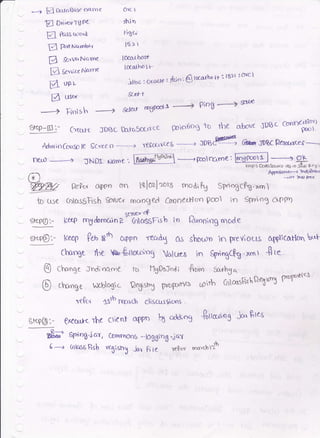 → ☑ DataBase name orcl
☑ DriverType thin
☑ Password tiger
☑ Port Number 1521
☑ ServerName localhost
☑ ServiceName localhost
☑ URL jdbc:oracle:thin:@localhost:1521:orcl
☑ user scott
→ Finish → select mypool1 → Ping → save
Step-(3):- Create JDBC DataSource pointing to the above JDBC connection
pool.
AdminConsole screen → resources → JDBC → JDBC Resources →
new → JNDI Name: MyDsJndi → poolname: mypool1 → OK
Refer appn on modify SpringCfg.xml
to use GlassFish server managed connection pool in Spring appn
step(1):- keep mydomain2 server of GlassFish in Running mode
step(2):- keep feb 8th appn ready as shown in previous application but
change the following values in SpringCfg.xml file.
(a) Change Jndi name to MyDsJndi from Sathya
(b) change weblogic Registry properties with GlassFish Registry properties.
refer march discussions
step(3):- execute the client appn by adding following jar files
Spring.jar, commons-logging.jar
→ GlassFish registry jar file refer march